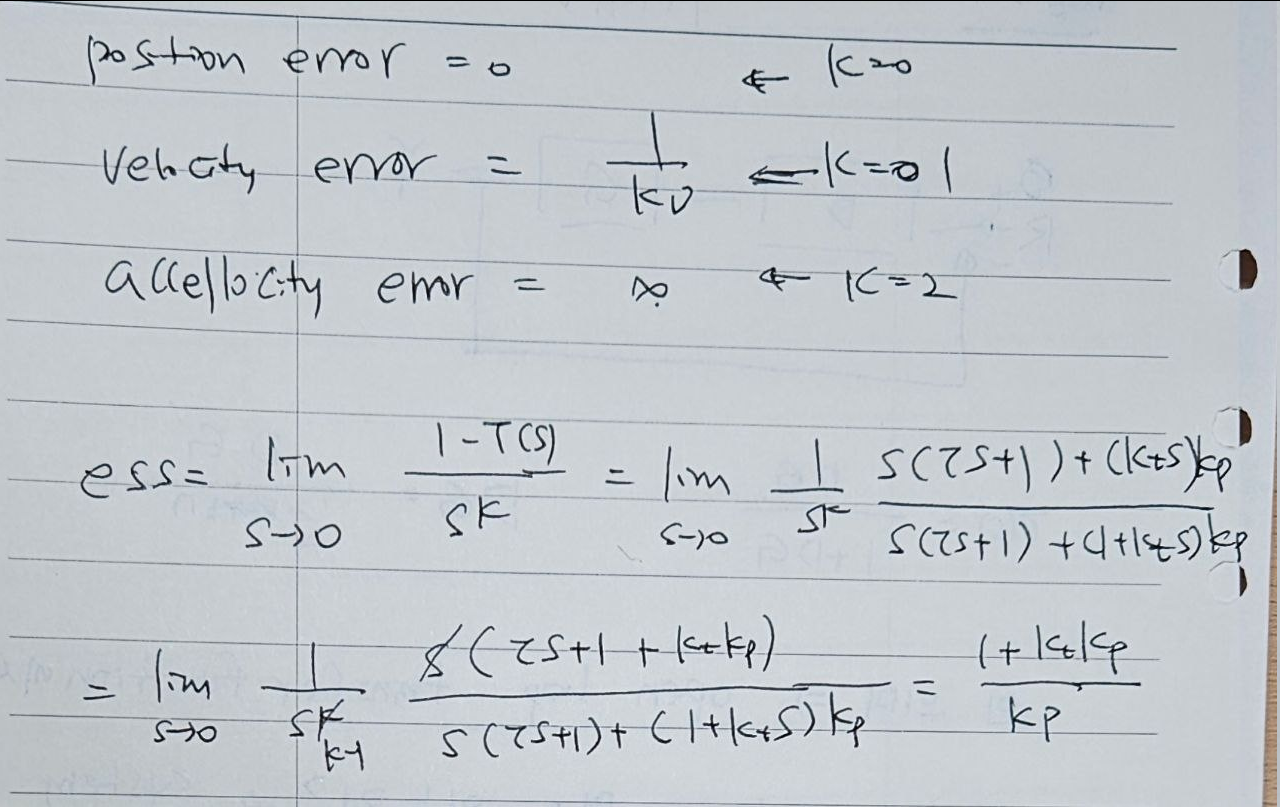 postion error = 0 ← k=0
Velocity error = 1/kv ⇐ k=0 1
accellocity error = ∞ ← k=2
ess = lim s→0 (1-T(s))/s^k = lim s→0 1/s^k (s(τs+1)+(kts)kp)/(s(τs+1)+(1+kts)kp)
= lim s→0 1/s^k k-1 s(τs+1+ktkp)/(s(τs+1)+(1+kts)kp) = (1+ktkp)/kp